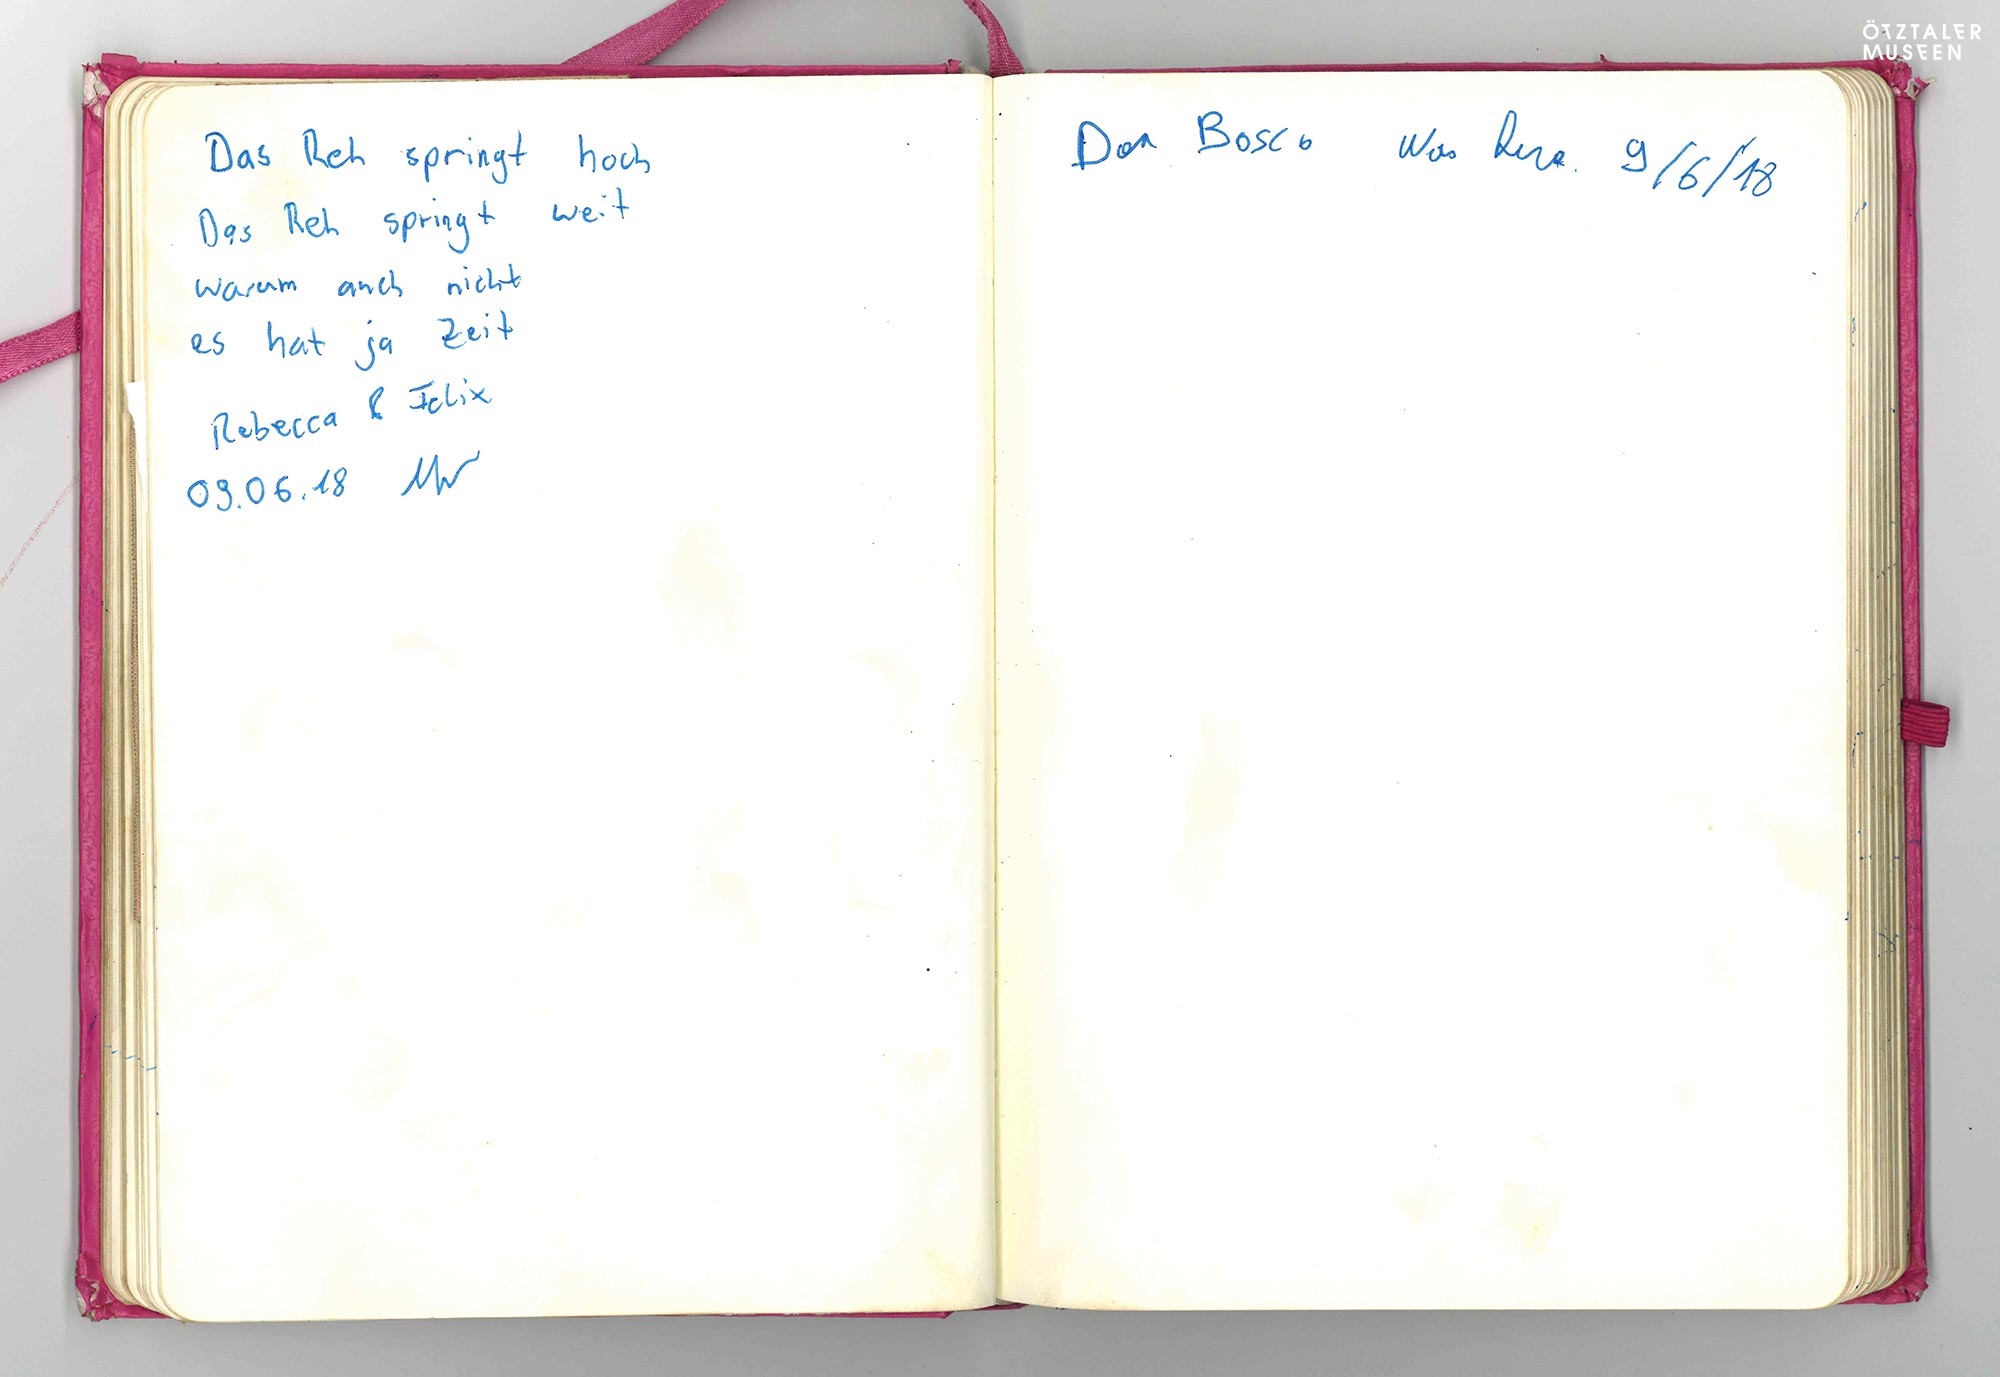 Das Reh springt hoch
Das Reh springt weit
warum auch nicht
es hat ja Zeit
Rebecca & Felix
09.06.18
Don Bosco Was here. 9/6/18
ÖTZTALER
MUSEEN